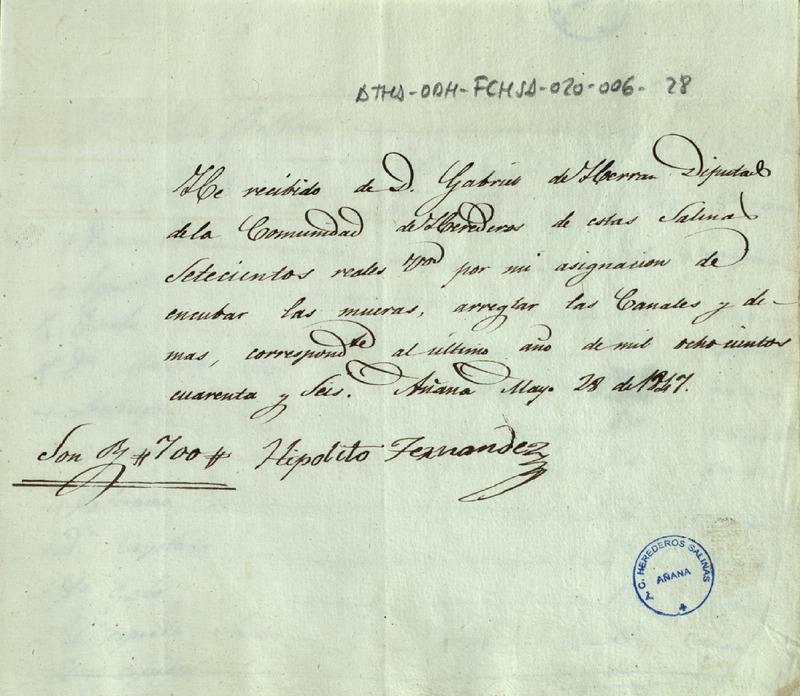 ATHA-DAH-FCHSA-020-006-28
He recibido de D. Gabriel de Herran Diputado
de la Comunidad de Herederos de estas Salinas
Setecientos reales Von por mi asignacion de
encubar las mueras, arreglar las Canales y de-
mas, correspondte al último año de mil ochocientos
cuarenta y Seis. Añana Mayo 28 de 1847.
Son Rs #700# Hipolito Fernandez
C. HEREDEROS SALINAS
AÑANA